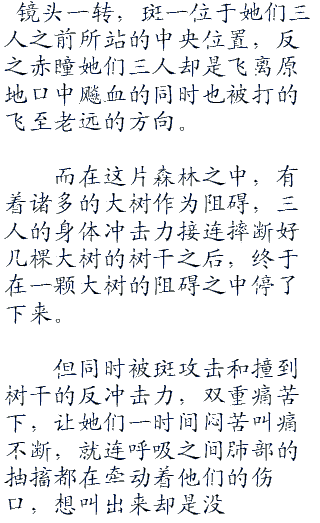 镜头一转，斑一位于她们三
人之前所站的中央位置，反
之赤瞳她们三人却是飞离原
地口中飚血的同时也被打的
飞至老远的方向。
而在这片森林之中，有
着诸多的大树作为阻碍，三
人的身体冲击力接连摔断好
几棵大树的树干之后，终于
在一颗大树的阻碍之中停了
下来。
但同时被斑攻击和撞到
树干的反冲击力，双重痛苦
下，让她们一时间闷苦叫痛
不断，就连呼吸之间肺部的
抽搐都在牵动着他们的伤
口，想叫出来却是没